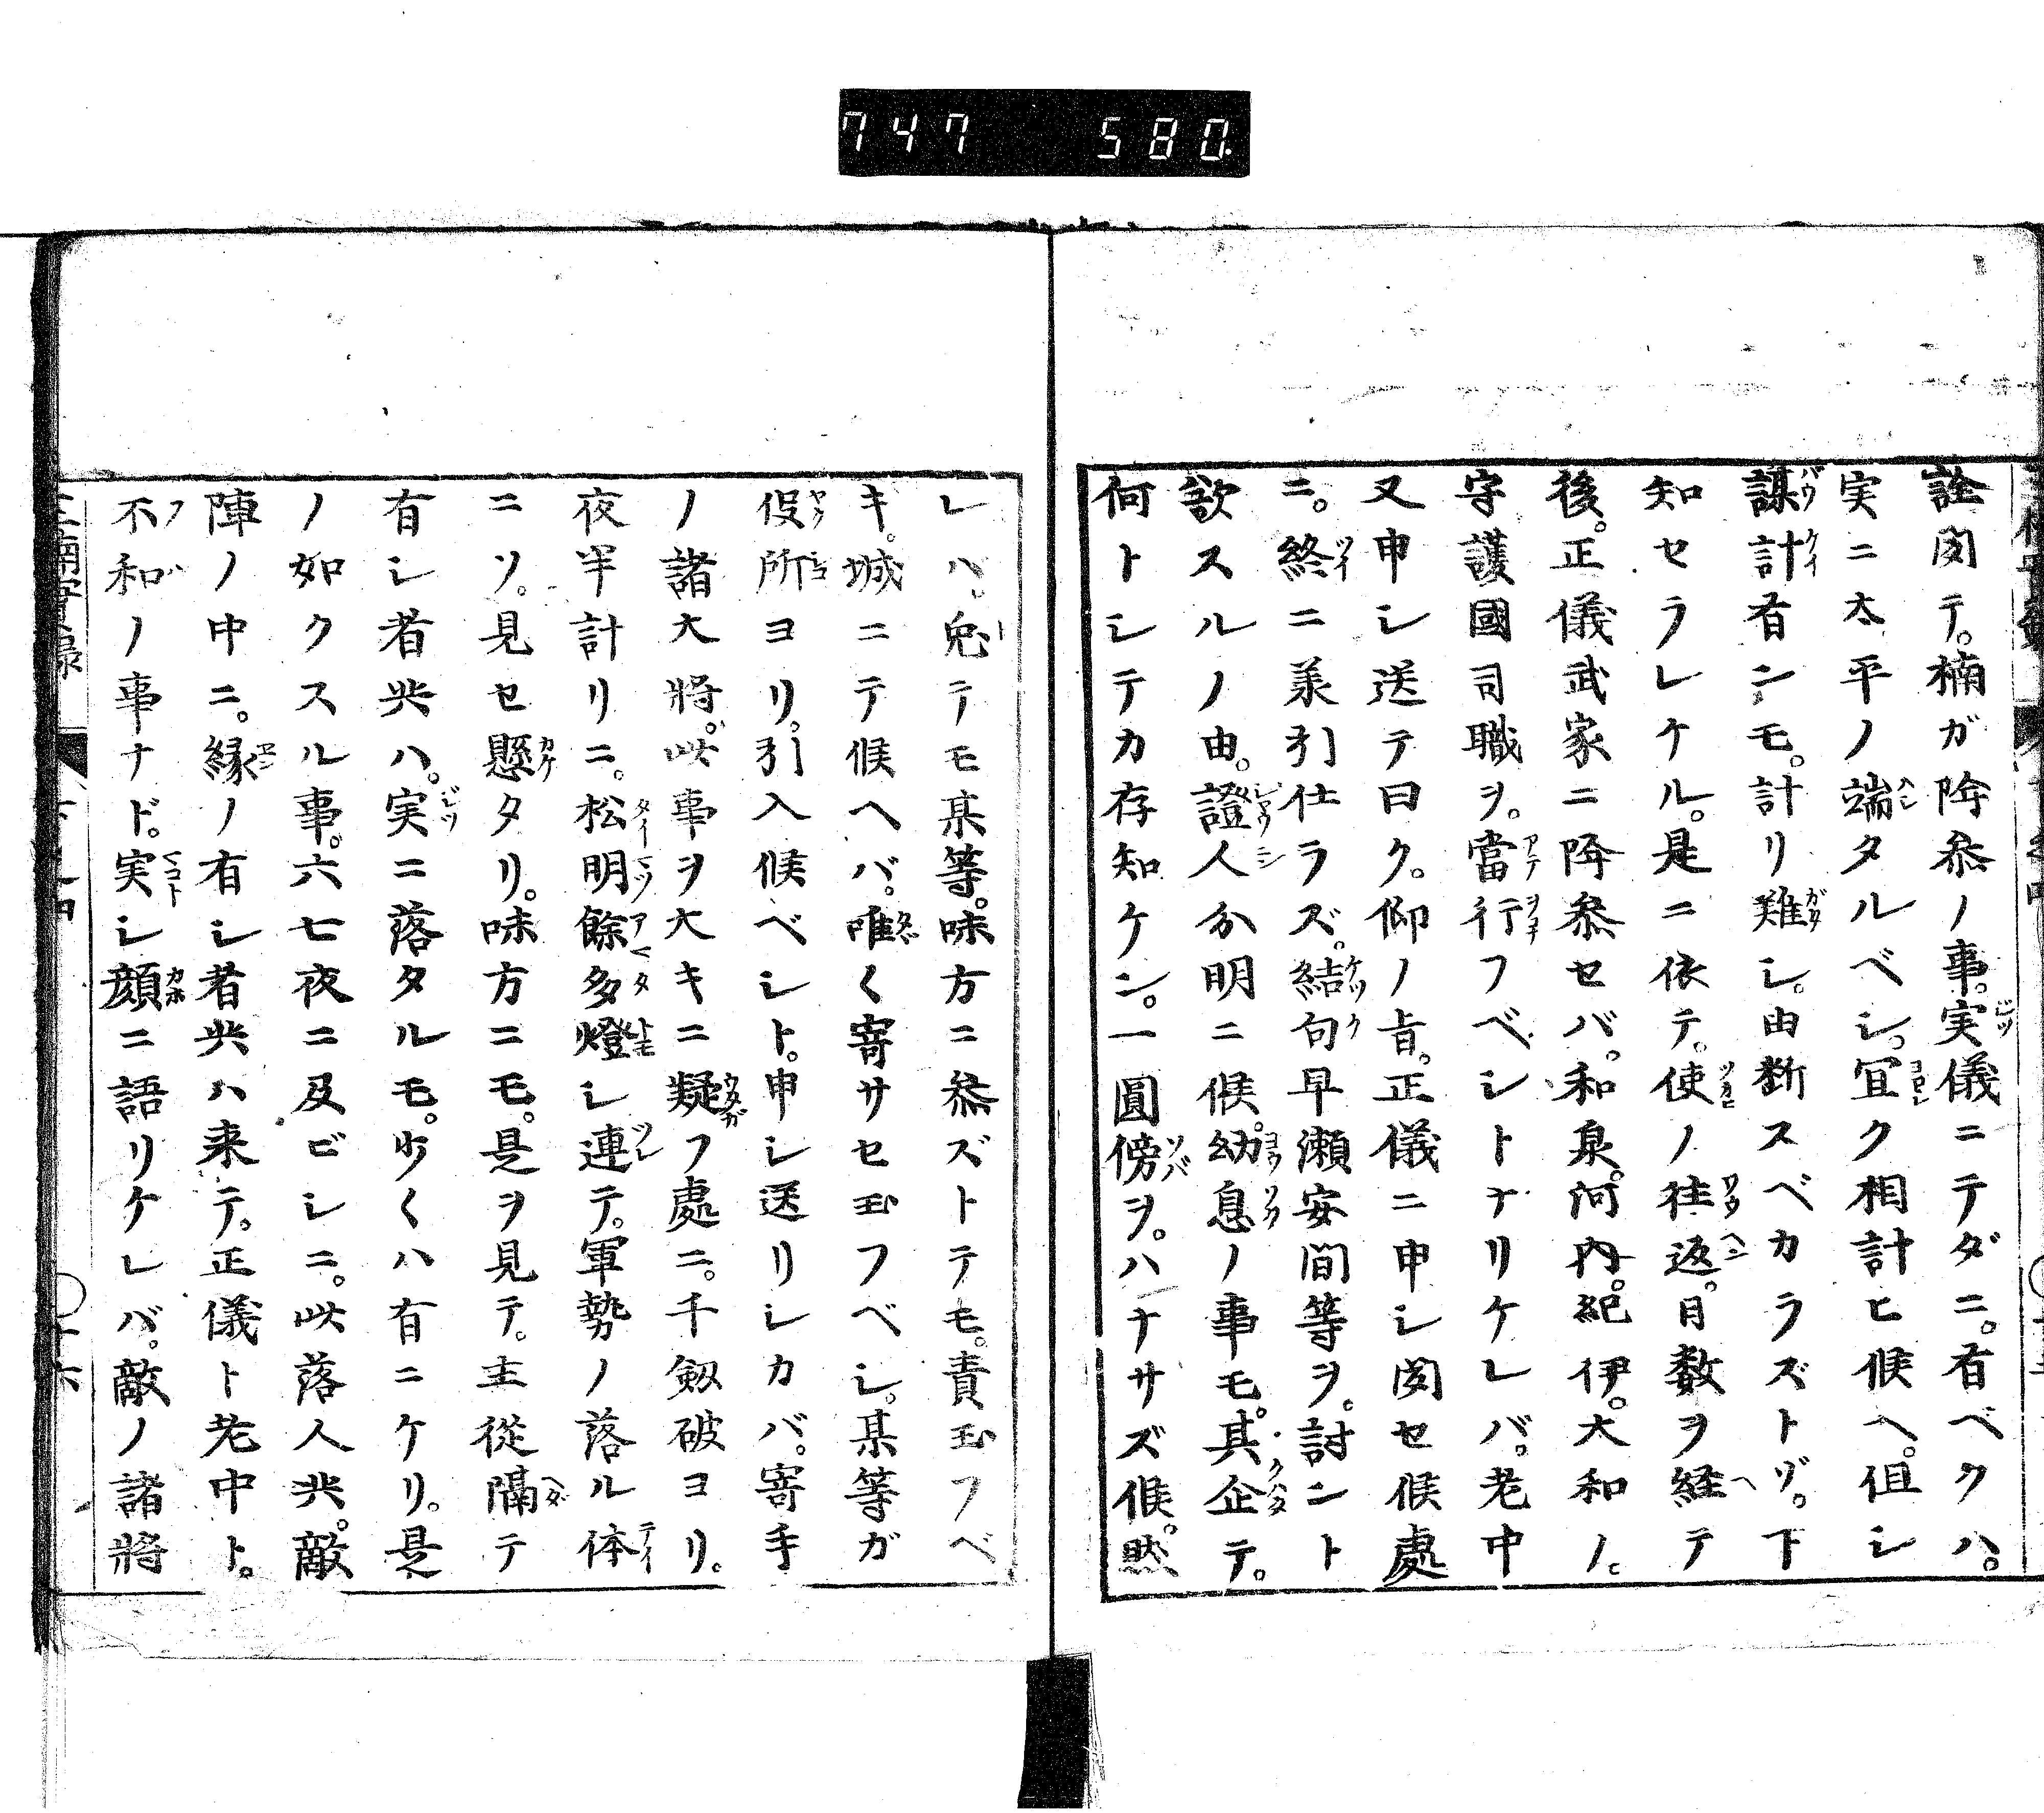 747 580.
詮閔テ。楠ガ降参ノ事。実儀ニテダニ。有ベクハ。
実ニ太平ノ端タルベシ。宜ク相計ヒ候ヘ。但シ
謀計有ンモ。計リ難シ。由断スベカラズトゾ。下
知セラレケル。是ニ依テ。使ノ往返。日数ヲ経テ
後。正儀武家ニ降参セバ。和泉。河内。紀伊。大和ノ。
守護國司職ヲ。當行フベシトナリケレバ。老中
又申シ送テ曰ク。仰ノ旨。正儀ニ申シ閔セ候處
ニ。終ニ羕引仕ラズ。結句早瀬安間等ヲ。討ント
欲スルノ由。證人分明ニ候。幼息ノ事モ。其企テ。
何トシテカ存知ケン。一圓傍ヲ。ハナサズ候。然
レハ。兎テモ某等。味方ニ参ズトテモ。責玉フベ
キ。城ニテ候ヘバ。唯く寄サセ玉フベシ。某等ガ
役所ヨリ。引入候ベシト。申シ送リシカバ。寄手
ノ諸大將。此事ヲ大キニ疑フ處ニ。千剱破ヨリ。
夜半計リニ。松明餘多燈シ連テ。軍勢ノ落ル体
ニソ。見セ懸タリ。味方ニモ。是ヲ見テ。主從隔テ
有シ者共ハ。実ニ落タルモ。少くハ有ニケリ。是
ノ如クスル事。六七夜ニ及ビシニ。此落人共。敵
陣ノ中ニ。縁ノ有シ者共ハ来テ。正儀ト老中ト。
不和ノ事ナド。実シ顔ニ語リケレバ。敵ノ諸將